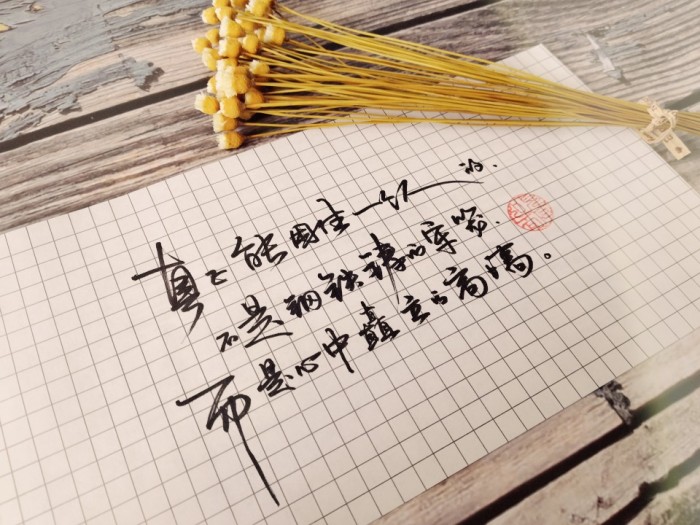 真正能困住一个人的,
不是钢铁铸的牢笼.
而是心中矗立的高墙。